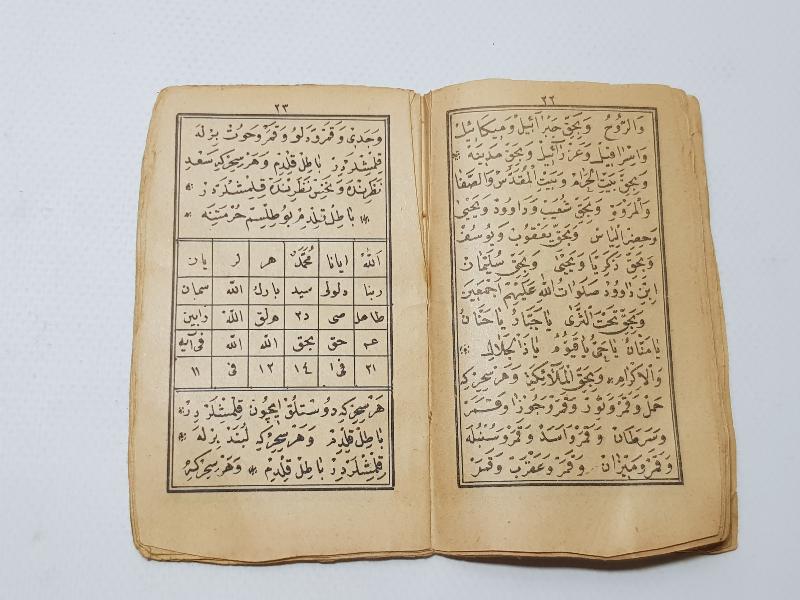 ٢٢
وَالرُّوحُ وَبِحَقِّ جَبْرَآئِيلَ وَمِيكَائِيلَ
وَاِسْرَافِيلَ وَعَزْرَآئِيلَ وَبِحَقِّ مَدِينَه
وَبِحَقِّ بَيْتِ الْحَرَامِ وَبَيْتِ الْمُقَدَّسِ وَالصَّفَا
وَالْمَرْوَةِ وَبِحَقِّ شُعَيْبَ وَدَاوُودَ وَيَحْيٰى
وَخِضِرِ اِلْيَاسَ وَبِحَقِّ يَعْقُوبَ وَيُوسُفَ
وَبِحَقِّ ذَكَرِيَّا وَيَحْيٰى وَبِحَقِّ سُلَيْمَانَ
ابْنِ دَاوُودَ صَلَوَاتُ اللّٰهِ عَلَيْهِمْ اَجْمَعِينَ
وَبِحَقِّ تَحْتَ الثَّرٰى يَا جَبَّارُ يَا حَنَّانُ
يَا مَنَّانُ يَا حَيُّ يَا قَيُّومُ يَا ذَا الْجَلَالِ
وَالْاِكْرَامِ وَبِحَقِّ الْمَلَآئِكَةِ وَهَرْ سِحِرْ كِه
حَمَلْ وَقَمَرْ وَثَوْرْ وَقَمَرْ وَجَوْزَا وَقَمَرْ
وَسَرَطَانْ وَقَمَرْ وَاَسَدْ وَقَمَرْ وَسُنْبُلَه
وَقَمَرْ وَمِيزَانْ وَقَمَرْ وَعَقْرَبْ وَقَمَرْ
٢٣
وَجَدِىْ وَقَمَرْ وَدَلْوْ وَقَمَرْ وَحُوتْ بِرْلَه
قِلْمِشْلَرْدِرْ بَاطِلْ قِلْدِمْ وَهَرْ سِحِرْ كِه سَعْدِ
نَظَرِنْدَه وَنَحْسِ نَظَرِنْدَه قِلْمِشْلَرْدِرْ
بَاطِلْ قِلْدِمْ بُو طِلْسِمْ حُرْمَتِنَه
اَللّٰهُ ايانا مُحَمَّدٌ هر لر يان
ربنا دلولى سيد بارك اللّه سمان
طاهل صى ٣د هرلق اللّه
عم حق بحق اللّه اللّه
٢١ فى١ ١٤ ١٢ فى ١١
هَرْ سِحِرْ كِه دُوسْتْلُقْ اِيچُونْ قِلْمِشْلَرْدِرْ
بَاطِلْ قِلْدِمْ وَهَرْ سِحِرْ كِه بِرْلَه
قِلْمِشْلَرْدِرْ بَاطِلْ قِلْدِمْ وَهَرْ سِحِرْ كِه